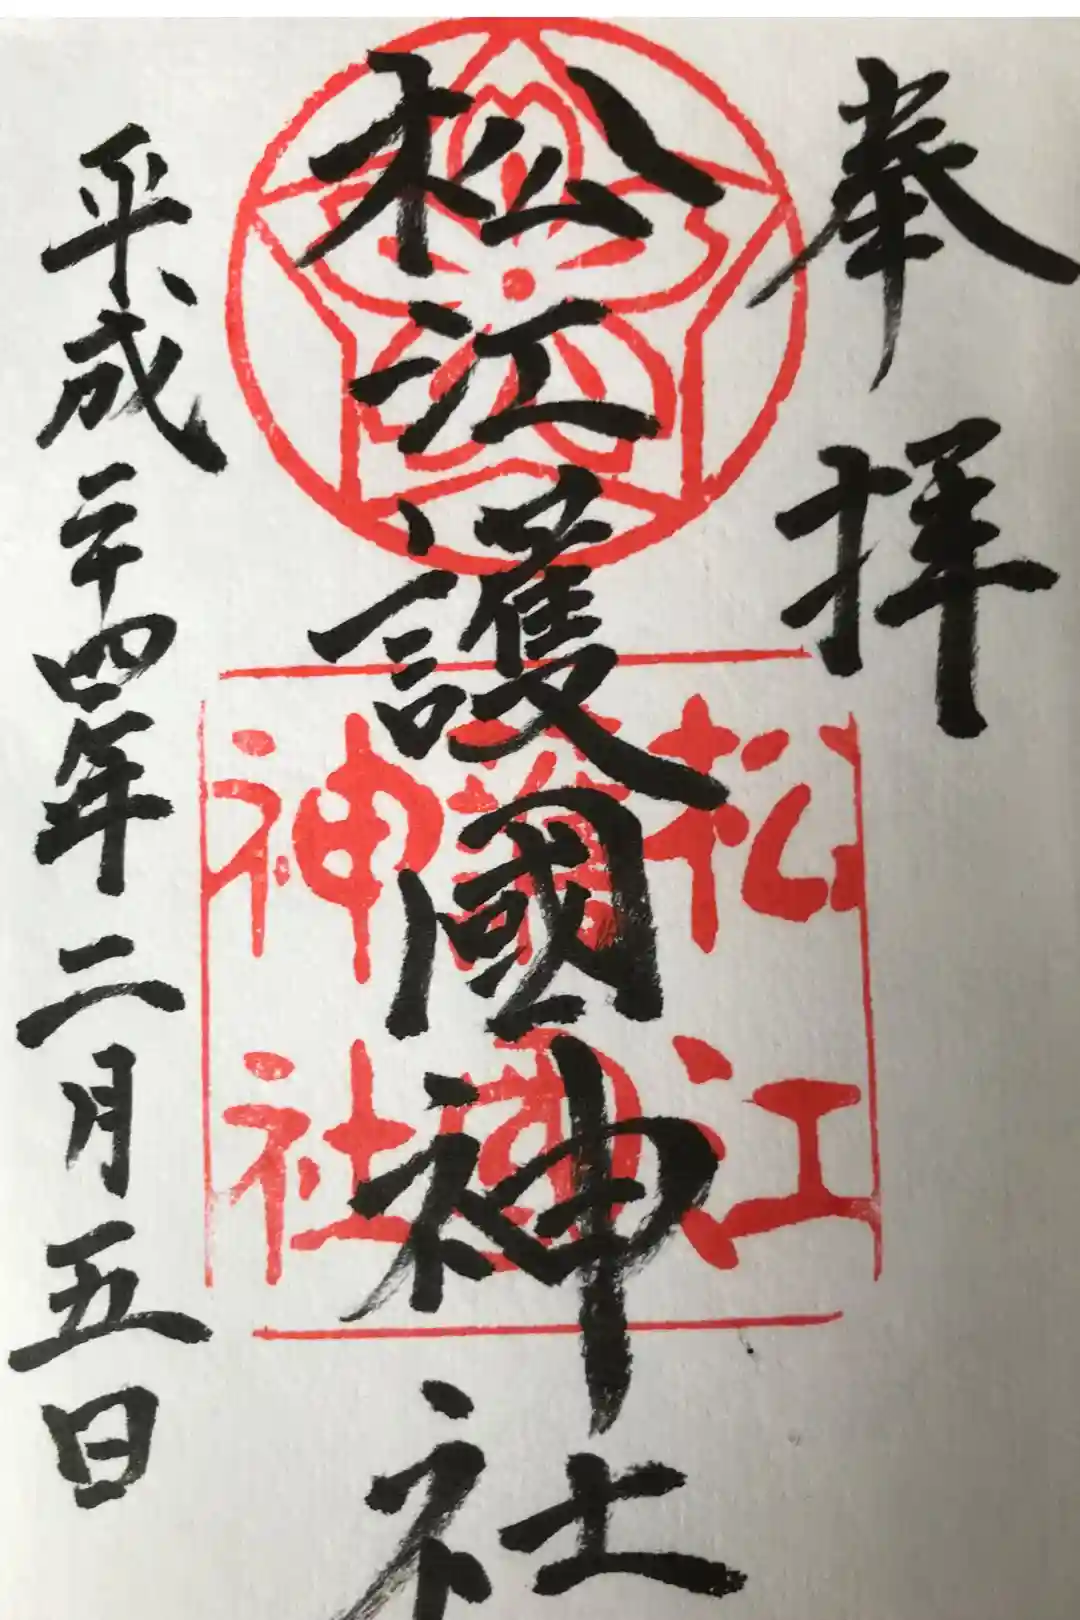 奉拝
松江護國神社
松江
護國
神社
平成二十四年二月五日